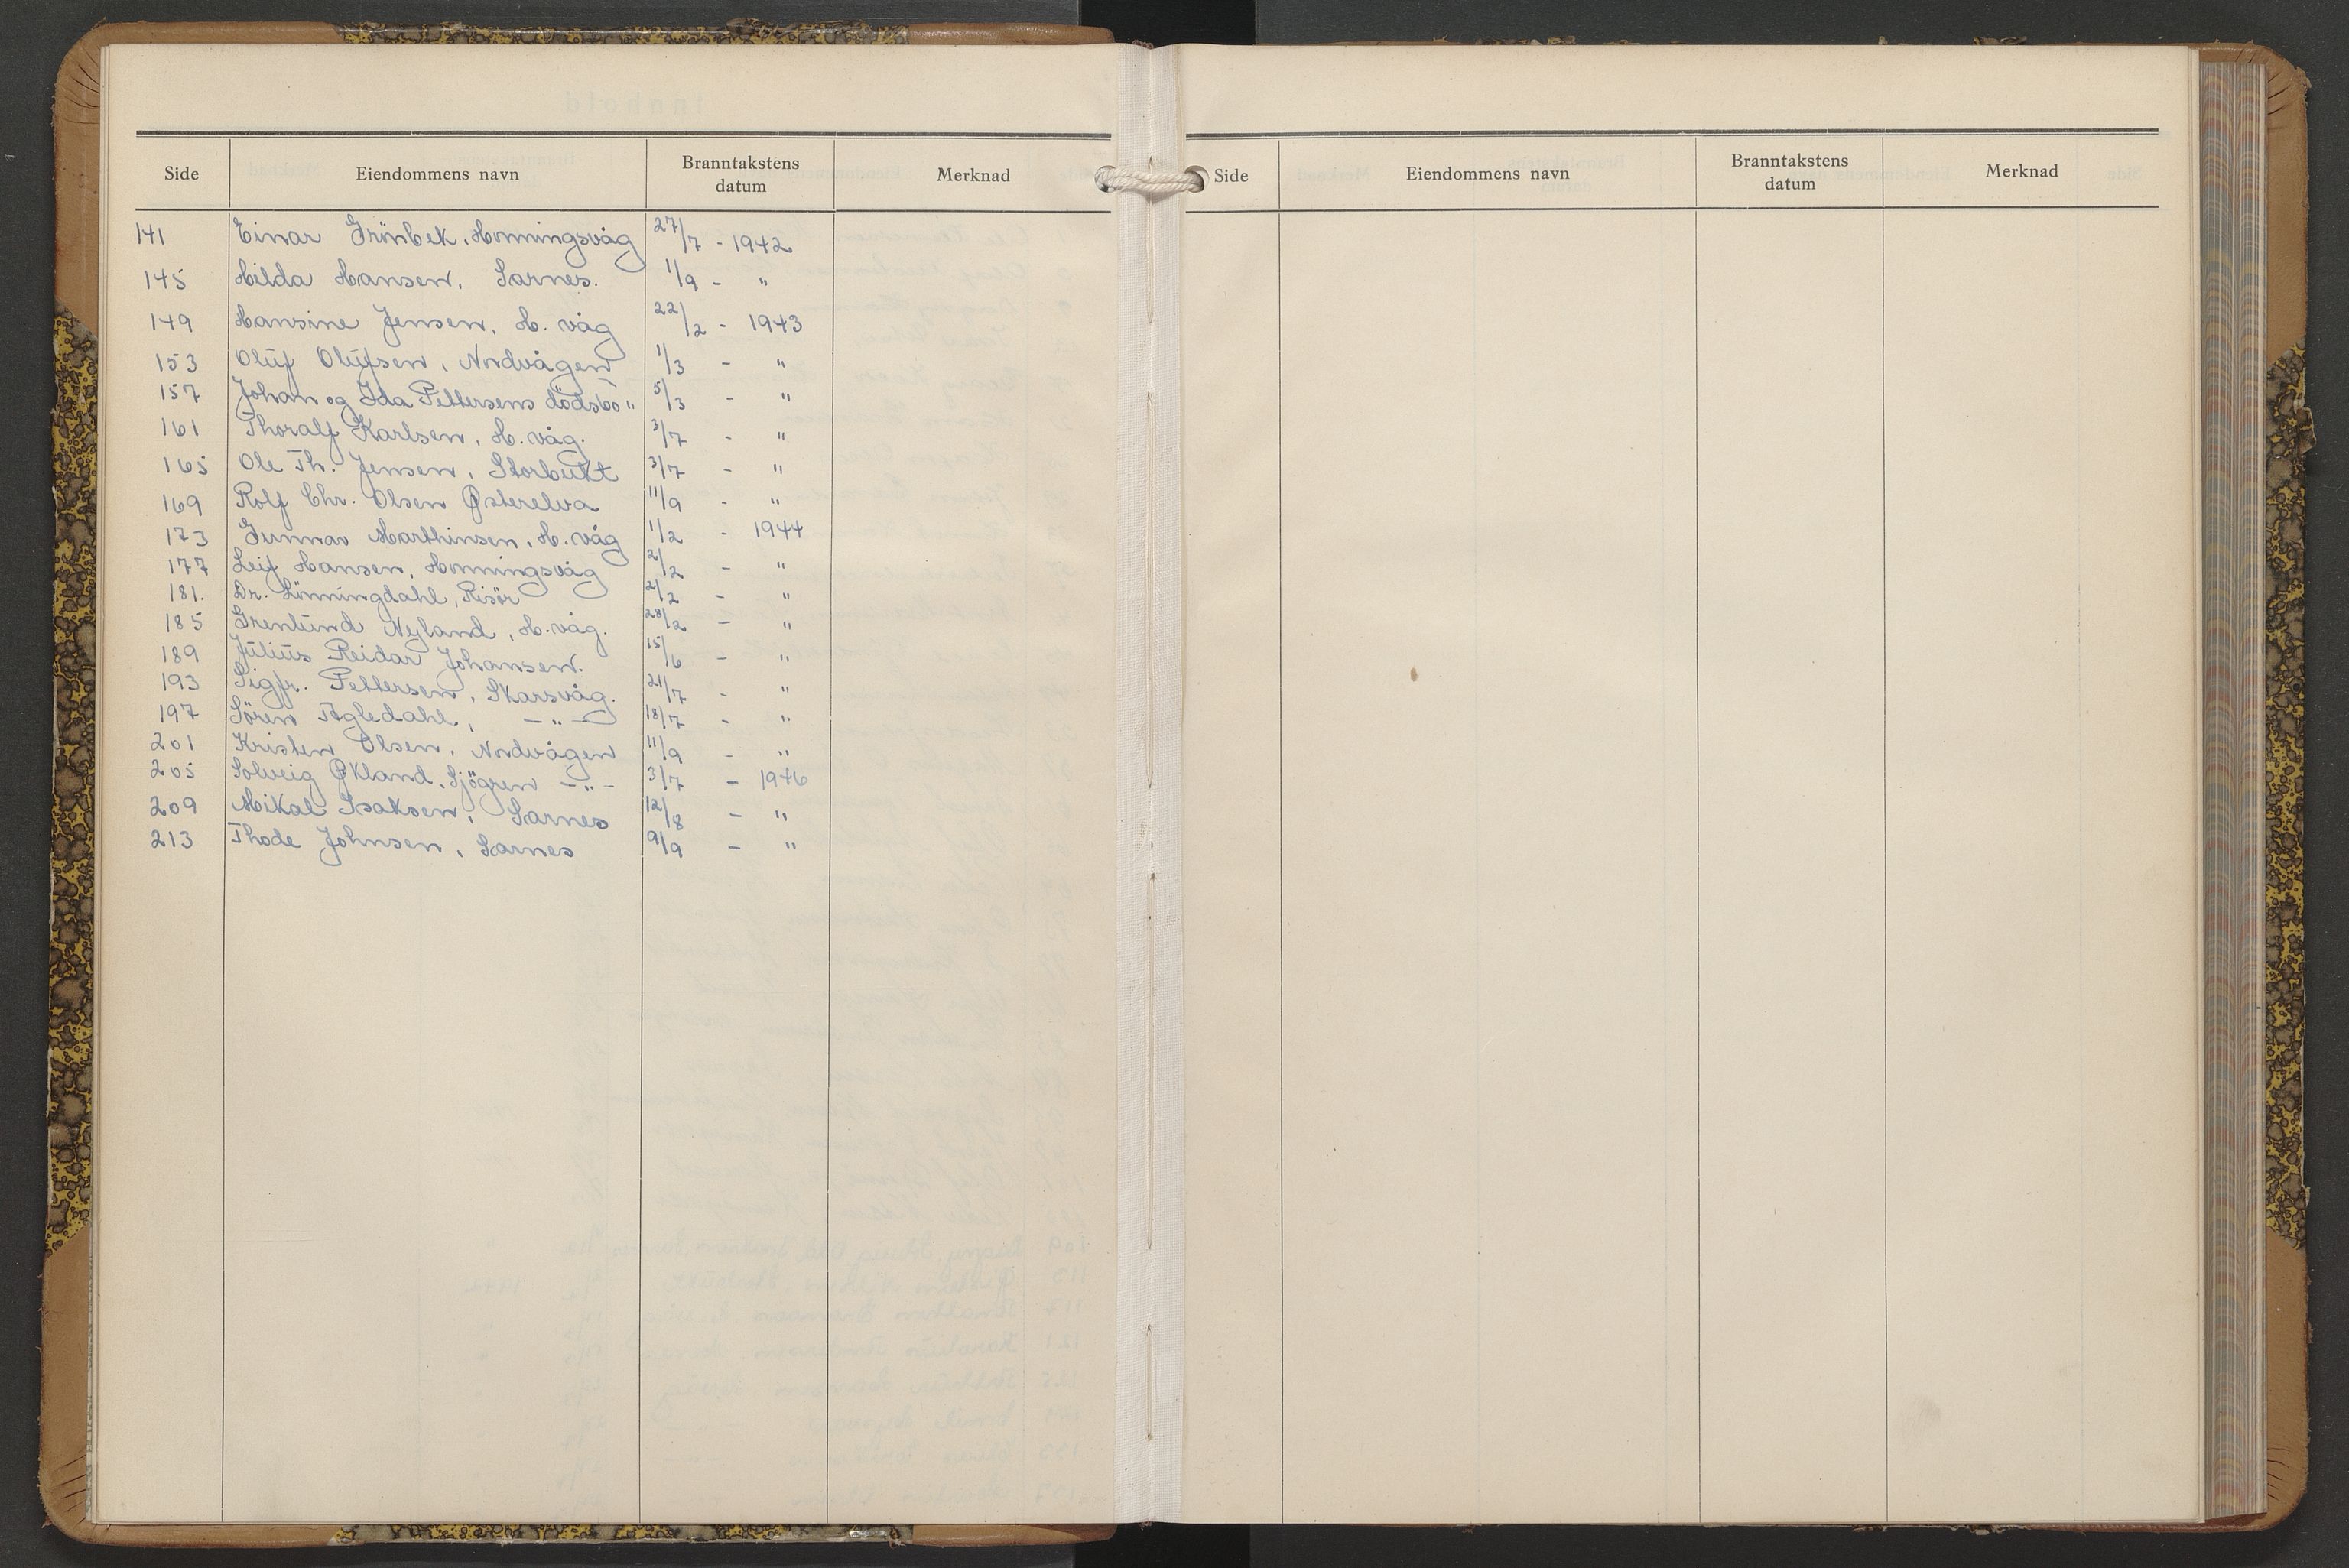 Side Eiendommens navn Branntakstens datum Merknad
141 Einar Grönbek, Honningsvåg 27/7 - 1942
145 Hilda Hansen, Sarnes. 1/9 - "
149 Hansine Jensen, H. våg 22/2 - 1943
153 Oluf Olufsen, Nordvågen 1/3 - "
157 Johan og Ida Pettersens dödsbo " 5/3 - "
161 Thoralf Karlsen, H. våg. 3/7 - "
165 Ole Th. Jensen, Storbukt 3/7 - "
169 Rolf Chr. Olsen Østerelva 11/9 - "
173 Gunnar Marthinsen, H. våg 1/2 - 1944
177 Leif Hansen, Honningsvåg 2/2 - "
181. Dr. Lönningdahl, Risör 2/2 - "
185 Grenlund Nyland, H. våg. 28/2 - "
189 Julius Reidar Johansen. 15/6 - "
193 Sigfr. Pettersen, Skarsvåg. 21/7 - "
197 Sören Agledahl, - " - 18/7 - "
201 Kristen Olsen, Nordvågen 11/9 - "
205 Solveig Økland, Sjögren - " - 3/7 - 1946
209 Mikal Isaksen, Sarnes 12/8 - "
213 Thode Johnsen, Sarnes 9/9 - "
Side Eiendommens navn Branntakstens datum Merknad